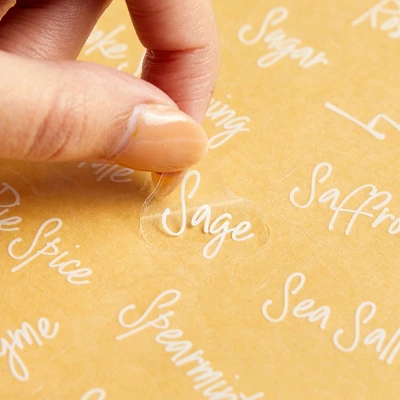 Sugar
Sage
Saffro
Pie Spice
Sea Salt
Spearmint
yme